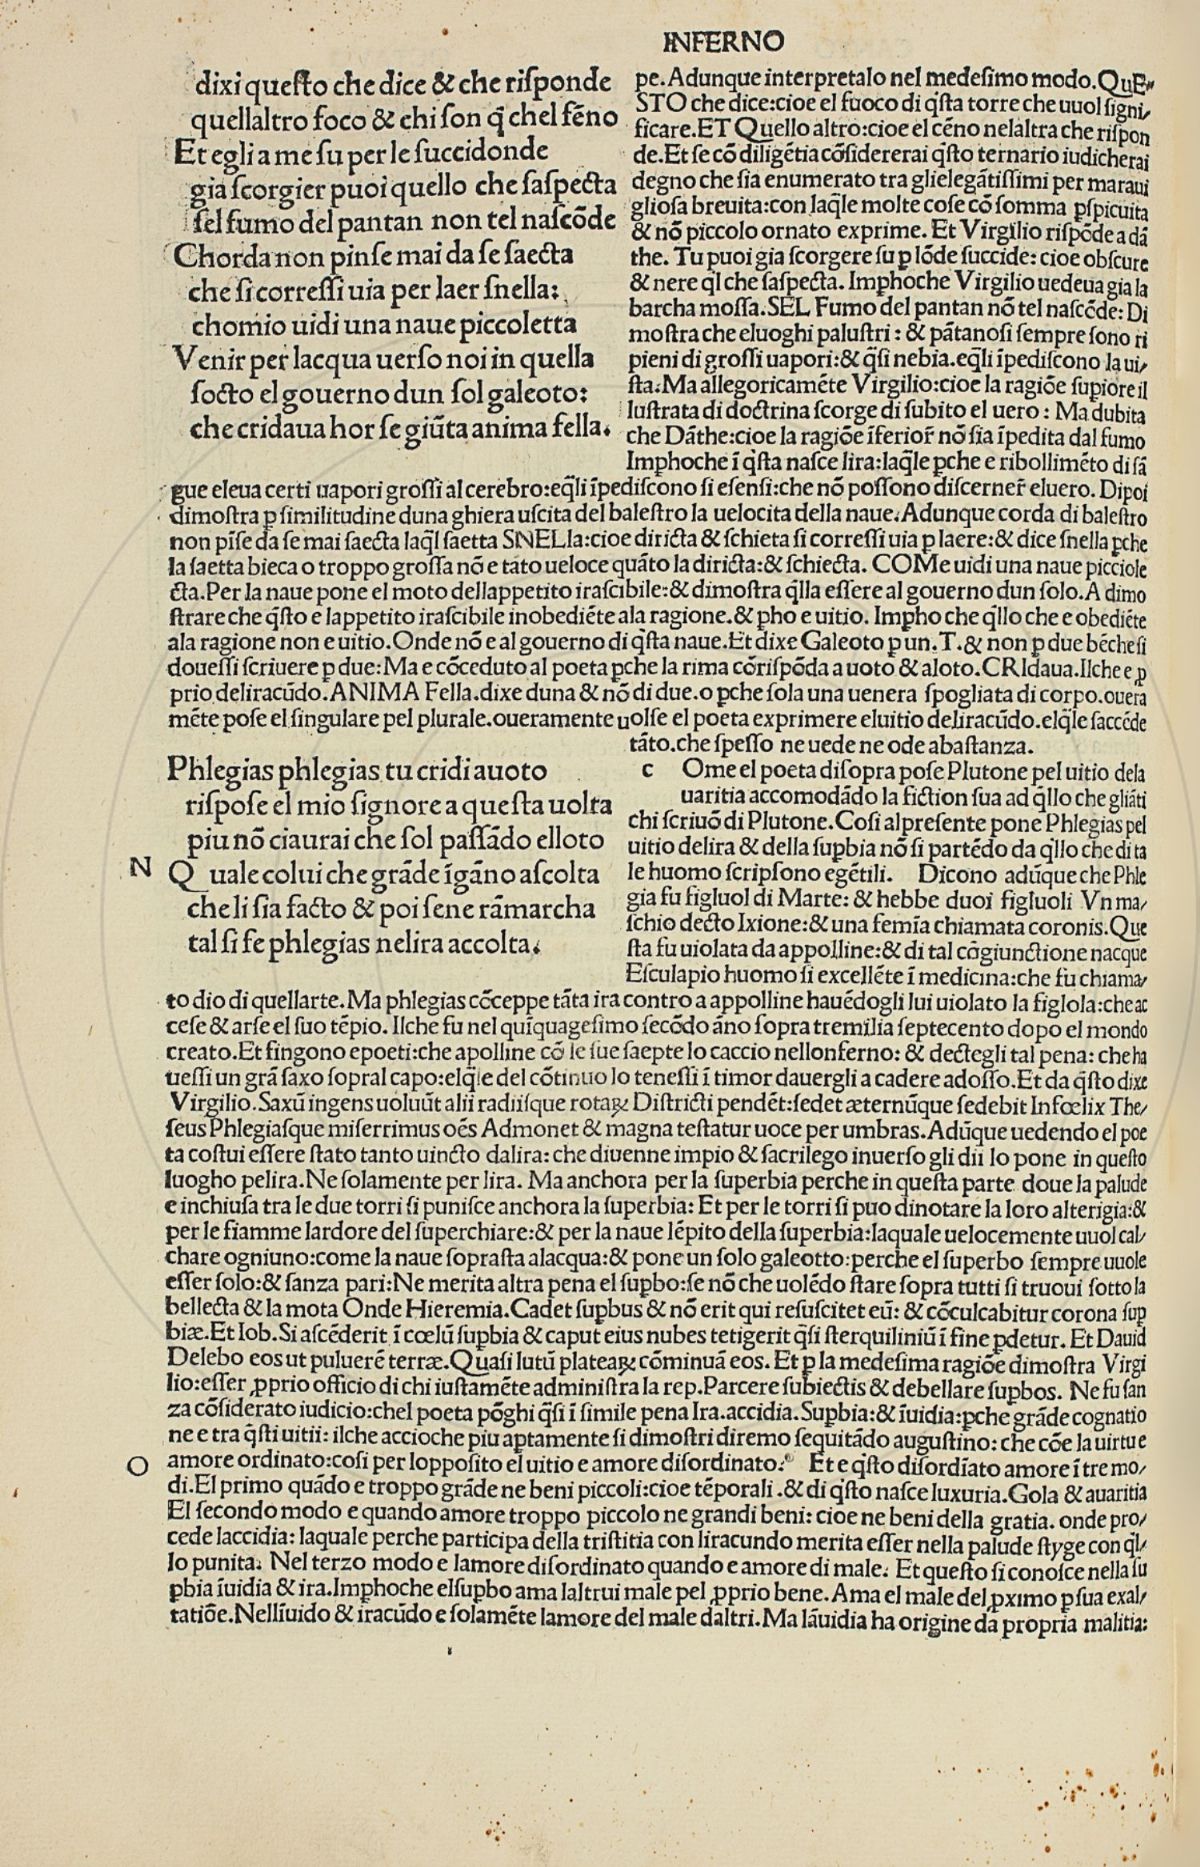 INFERNO
dixi questo che dice & che risponde
quellaltro foco & chi son q̄ chel fēno
Et egli a me su per le succidonde
gia scorgier puoi quello che saspecta
sel fumo del pantan non tel nascōde
Chorda non pinse mai da se saecta
che si corressi uia per laer snella:
chomio uidi una naue piccoletta
Venir per lacqua uerso noi in quella
socto el gouerno dun sol galeoto:
che cridaua hor se giūta anima fella.
pe. Adunque interpretalo nel medesimo modo. QuE-
STO che dice: cioe el fuoco di q̄sta torre che uuol signi/
ficare. ET Quello altro: cioe el cēno nelaltra che rispon
de. Et se cō diligētia cōsidererai q̄sto ternario iudicherai
degno che sia enumerato tra glielegātissimi per maraui
gliosa breuita: con laq̄le molte cose cō somma ꝑspicuita
& nō piccolo ornato exprime. Et Virgilio rispōde a dā
the. Tu puoi gia scorgere su ꝑ lōde succide: cioe obscure
& nere q̄l che saspecta. Imphoche Virgilio uedeua gia la
barcha mossa. SEL Fumo del pantan nō tel nascōde: Di
mostra che eluoghi palustri: & pātanosi sempre sono ri
pieni di grossi uapori: & q̄si nebia. eq̄li īpediscono la ui/
sta. Ma allegoricamēte Virgilio: cioe la ragiōe supiore il
lustrata di doctrina scorge di subito el uero: Ma dubita
che Dāthe: cioe la ragiōe īferior̄ nō sia īpedita dal fumo
Imphoche ī q̄sta nasce lira: laq̄le ꝑche e ribollimēto di sā
gue eleua certi uapori grossi al cerebro: eq̄li īpediscono si esensi: che nō possono discerner̄ eluero. Dipoi
dimostra ꝑ similitudine duna ghiera uscita del balestro la uelocita della naue. Adunque corda di balestro
non pīse da se mai saecta laq̄l saetta SNELla: cioe diricta & schieta si corressi uia ꝑ laere: & dice snella ꝑche
la saetta bieca o troppo grossa nō e tāto ueloce quāto la diricta: & schiecta. COMe uidi una naue picciole
cta. Per la naue pone el moto dellappetito irascibile: & dimostra q̄lla essere al gouerno dun solo. A dimo
strare che q̄sto e lappetito irascibile inobediēte ala ragione. & pho e uitio. Impho che q̄llo che e obediēte
ala ragione non e uitio. Onde nō e al gouerno di q̄sta naue. Et dixe Galeoto ꝑ un. T. & non ꝑ due bēche si
douessi scriuere ꝑ due: Ma e cōceduto al poeta ꝑche la rima cōrispōda a uoto & aloto. CRIdaua. Ilche e ꝓ
prio deliracūdo. ANIMA Fella. dixe duna & nō di due. o ꝑche sola una uenera spogliata di corpo. ouera
mēte pose el singulare pel plurale. oueramente uolse el poeta exprimere eluitio deliracūdo. elq̄le saccēde
tāto. che spesso ne uede ne ode abastanza.
Phlegias phlegias tu cridi auoto
rispose el mio signore a questa uolta
piu nō ciaurai che sol passādo elloto
N
Quale colui che grāde īgāno ascolta
che li sia facto & poi sene rāmarcha
tal si fe phlegias nelira accolta.
c Ome el poeta disopra pose Plutone pel uitio dela
uaritia accomodādo la fiction sua ad q̄llo che gliāti
chi scriuō di Plutone. Cosi al presente pone Phlegias pel
uitio delira & della supbia nō si partēdo da q̄llo che di ta
le huomo scripsono egētili. Dicono adūque che Phle
gia fu figluol di Marte: & hebbe duoi figluoli Vn ma/
schio decto Ixione: & una femīa chiamata coronis. Que
sta fu uiolata da appolline: & di tal cōgiunctione nacque
Esculapio huomo si excellēte ī medicina: che fu chiama/
to dio di quellarte. Ma phlegias cōceppe tāta ira contro a appolline hauēdogli lui uiolato la figlola: che ac
cese & arse el suo tēpio. Ilche fu nel quīquagesimo secōdo āno sopra tremilia septecento dopo el mondo
creato. Et fingono epoeti: che apolline cō le sue saepte lo caccio nellonferno: & dectegli tal pena: che ha
uessi un grā saxo sopral capo: elq̄le del cōtinuo lo tenessi ī timor dauergli a cadere adosso. Et da q̄sto dixe
Virgilio. Saxū ingens uoluūt alii radiisque rotaꝝ Districti pendēt: sedet æternūque sedebit Infœlix The/
seus Phlegiasque miserrimus oēs Admonet & magna testatur uoce per umbras. Adūque uedendo el poe
ta costui essere stato tanto uincto dalira: che diuenne impio & sacrilego inuerso gli dii lo pone in questo
luogho pelira. Ne solamente per lira. Ma anchora per la superbia perche in questa parte doue la palude
e inchiusa tra le due torri si punisce anchora la superbia: Et per le torri si puo dinotare la loro alterigia: &
per le fiamme lardore del superchiare: & per la naue lēpito della superbia: laquale uelocemente uuol cal/
chare ogniuno: come la naue soprasta alacqua: & pone un solo galeotto: perche el superbo sempre uuole
esser solo: & sanza pari: Ne merita altra pena el supbo: se nō che uolēdo stare sopra tutti si truoui sotto la
bellecta & la mota Onde Hieremia. Cadet supbus & nō erit qui resuscitet eū: & cōculcabitur corona sup
biæ. Et Iob. Si ascēderit ī cœlū supbia & caput eius nubes tetigerit q̄si sterquiliniū ī fine ꝑdetur. Et Dauid
Delebo eos ut puluerē terræ. Quasi lutū plateaꝝ cōminuā eos. Et ꝑ la medesima ragiōe dimostra Virgi
lio: esser ꝓprio officio di chi iustamēte administra la rep. Parcere subiectis & debellare supbos. Ne fu san
za cōsiderato iudicio: chel poeta pōghi q̄si ī simile pena Ira. accidia. Supbia: & īuidia: ꝑche grāde cognatio
ne e tra q̄sti uitii: ilche accioche piu aptamente si dimostri diremo sequitādo augustino: che cōe la uirtu e
O
amore ordinato: cosi per lopposito el uitio e amore disordinato. Et e q̄sto disordīato amore ī tre mo/
di. El primo quādo e troppo grāde ne beni piccoli: cioe tēporali. & di q̄sto nasce luxuria. Gola & auaritia
El secondo modo e quando amore troppo piccolo ne grandi beni: cioe ne beni della gratia. onde pro/
cede laccidia: laquale perche participa della tristitia con liracundo merita esser nella palude styge con q̄l/
lo punita. Nel terzo modo e lamore disordinato quando e amore di male. Et questo si conosce nella su
ꝑbia īuidia & ira. Imphoche elsupbo ama laltrui male pel ꝓprio bene. Ama el male del ꝓximo ꝑ sua exal/
tatiōe. Nellīuido & iracūdo e solamēte lamore del male daltri. Ma lāuidia ha origine da propria malitia: